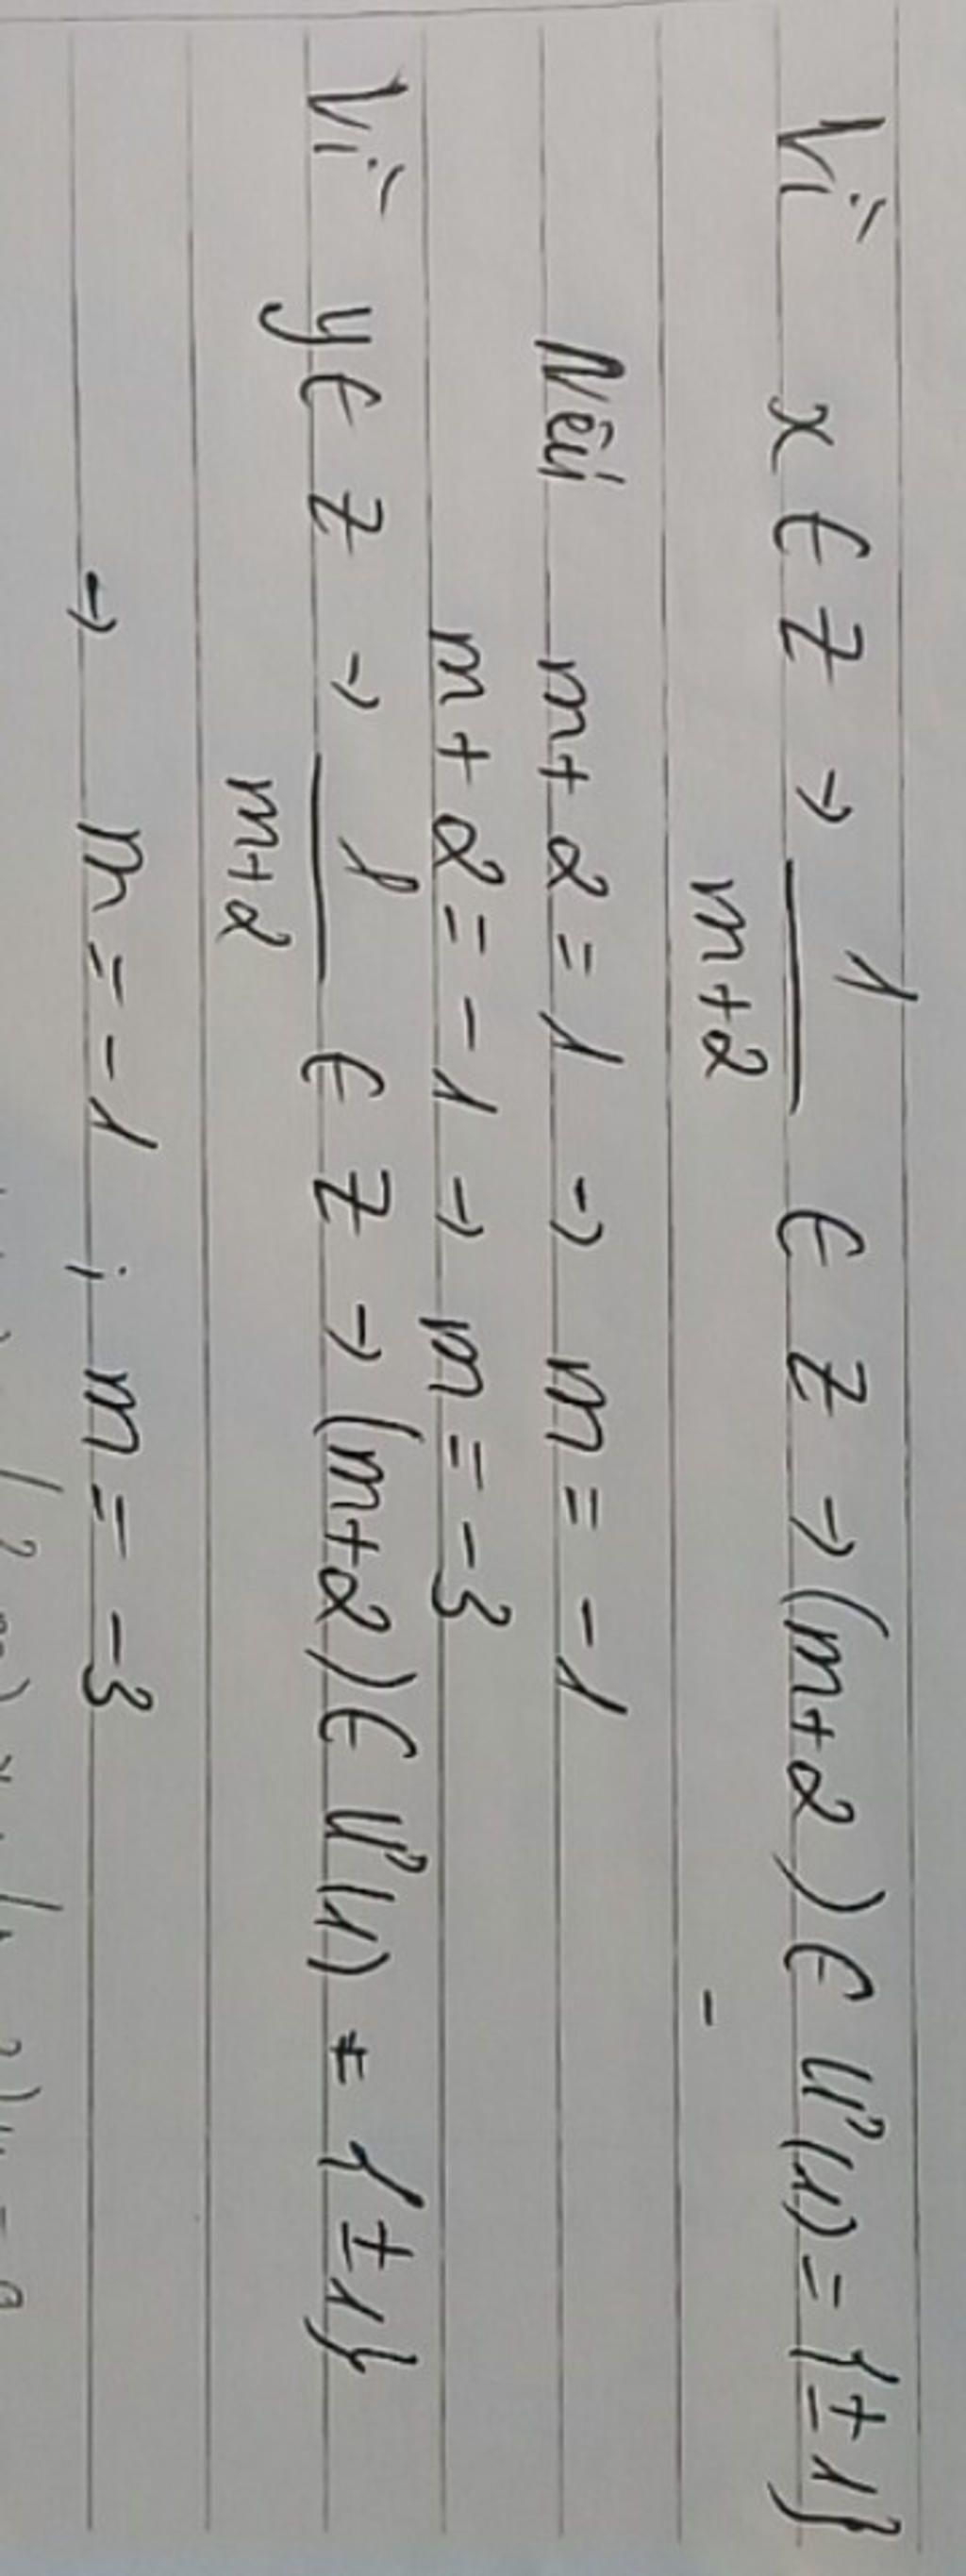 Vì x ∈ Z → 1/(m+2) ∈ Z → (m+2) ∈ Ư(1) = {±1}
Nếu m+2 = 1 → m = -1
m+2 = -1 → m = -3
Vì y ∈ Z → 1/(m+2) ∈ Z → (m+2) ∈ Ư(1) = {±1}
→ m = -1 ; m = -3